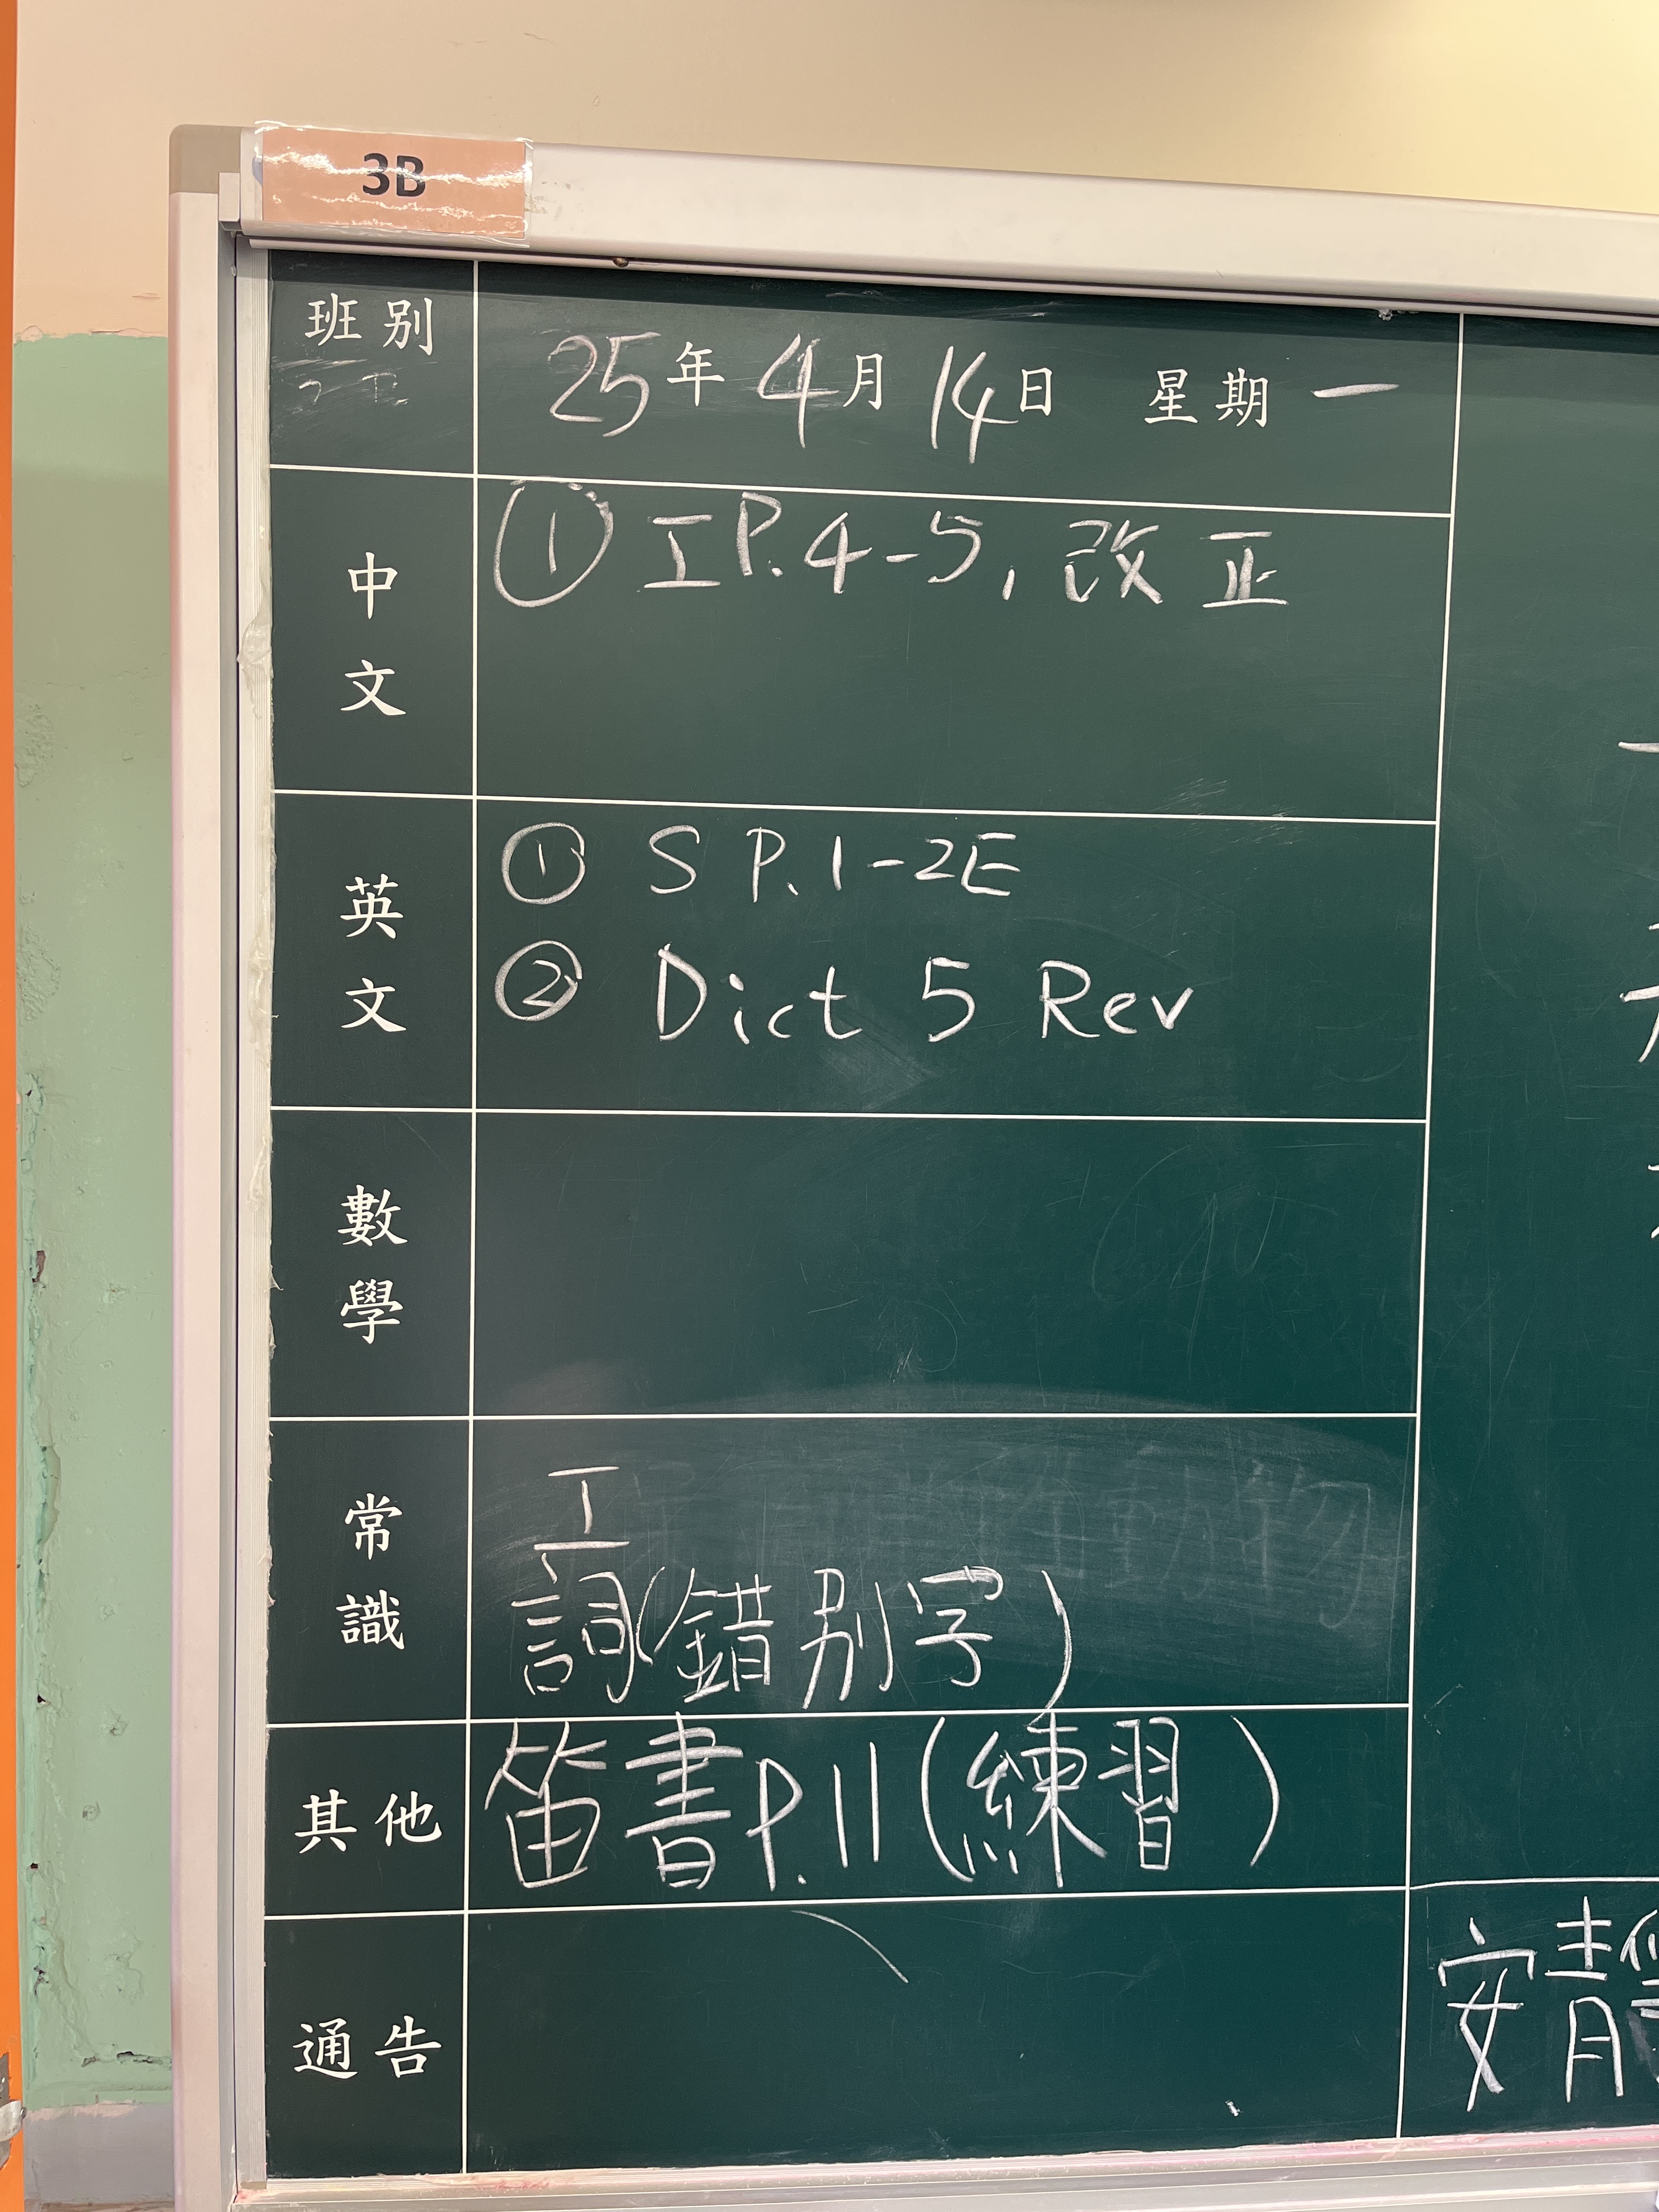 3B
班別
25年4月14日 星期一
中文
① 工P.4-5, 改正
英文
① S P.1-2E
② Dict 5 Rev
數學
常識
工
詞(錯別字)
其他
笛書P.11(練習)
通告
安靜